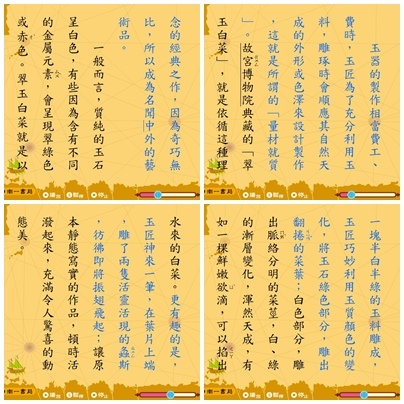 玉器的製作相當費工、
費時，玉匠為了充分利用玉
料，雕琢時會順應其自然天
成的外形或色澤來設計製作
，這就是所謂的「量材就質
」。故宮博物院典藏的「翠
玉白菜」，就是依循這種理
念的經典之作，因為奇巧無
比，所以成為名聞中外的藝
術品。
一般而言，質純的玉石
呈白色，有些因為含有不同
的金屬元素，會呈現翠綠色
或赤色。翠玉白菜就是以
一塊半白半綠的玉料雕成，
玉匠巧妙利用玉質顏色的變
化，將玉石綠色部分，雕出
翻捲的菜葉；白色部分，雕
出脈絡分明的菜莖，白、綠
的漸層變化，渾然天成，有
如一棵鮮嫩欲滴，可以掐出
水來的白菜。更有趣的是，
玉匠神來一筆，在葉片上端
，雕了兩隻活靈活現的螽斯
，彷彿即將振翅飛起；讓原
本靜態寫實的作品，頓時活
潑起來，充滿令人驚喜的動
態美。
南一書局